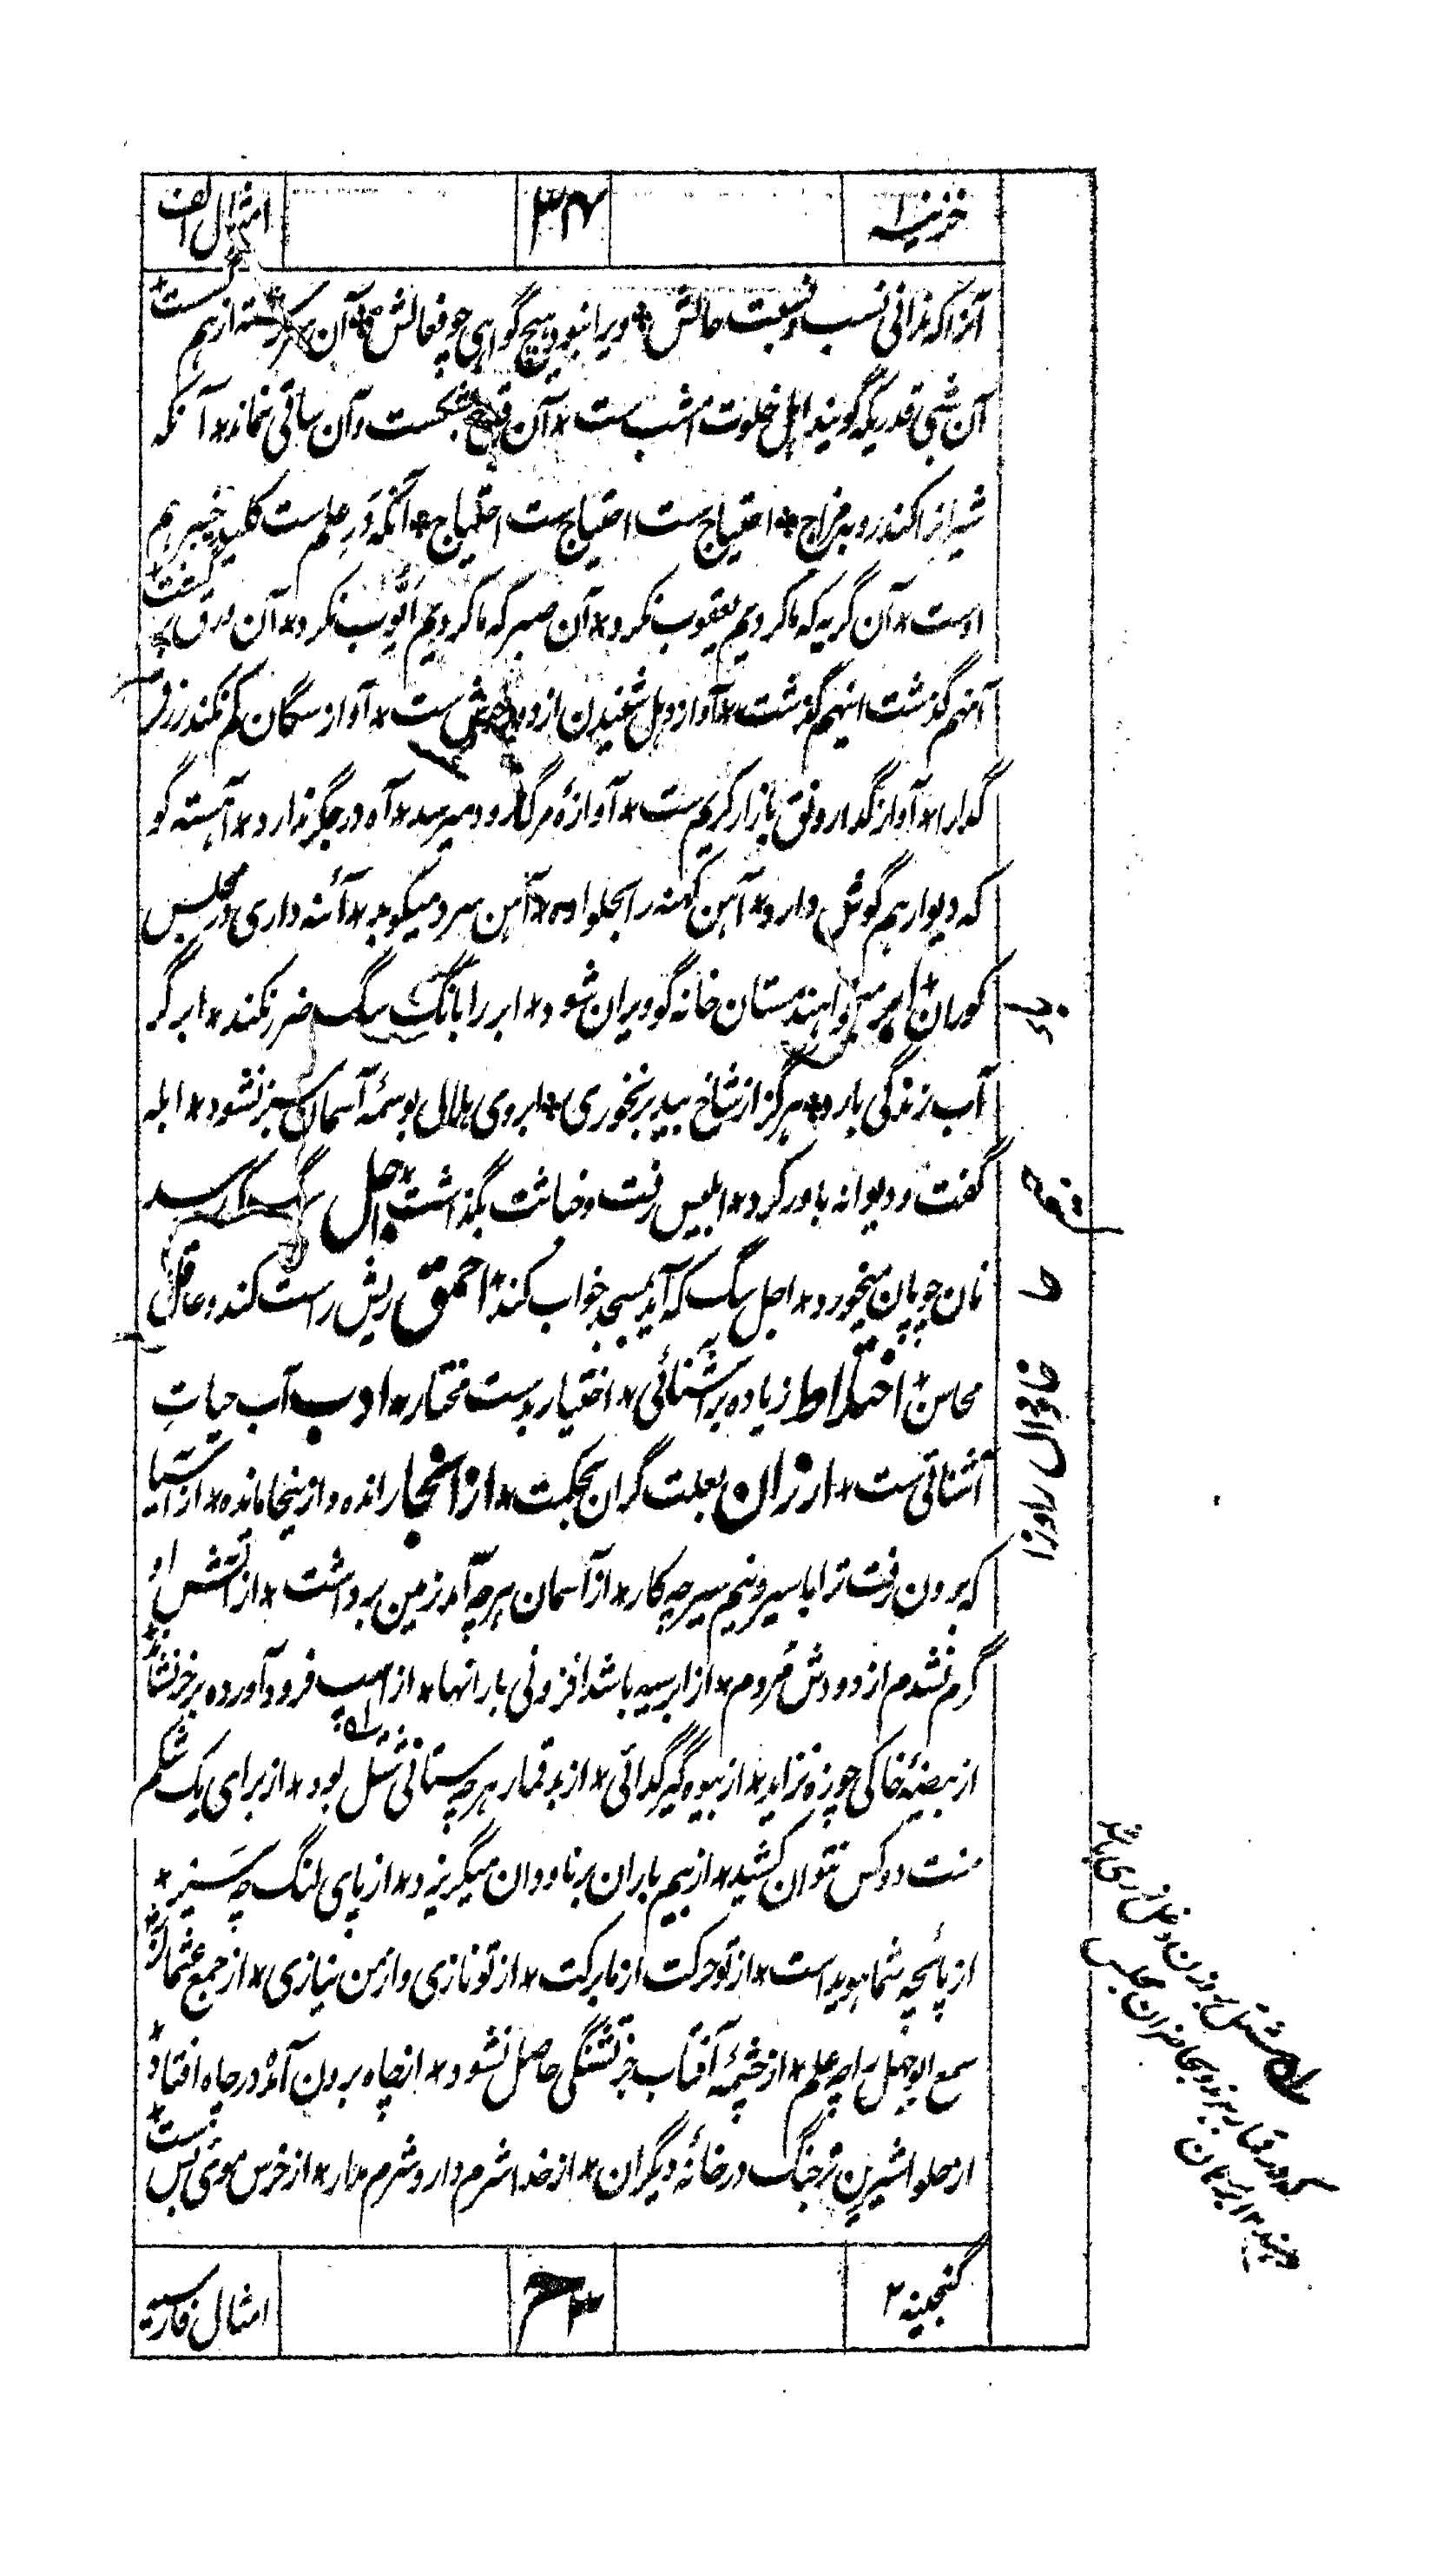 خزینه ۱
۳۴
امثال الف
آنرا که ندانی نسب و نسبت حالش * ویرا نبود هیچ گواهی چو فعالش * آن سررشته از هم گسست *
آن شبی قدریکه گویند اهل خلوت امشب ست * آن قدح بشکست و آن ساقی نماند * آنکه
شیرانرا کند روبه مزاج * احتیاج ست احتیاج ست احتیاج * آنکه در علم ست کلید خیبر هم
اوست * آن گریه که ما کردیم یعقوب نکرد * آن صبر که ما کردیم ایّوب نکرد * آن ورق برگشت *
آنهم گذشت اینهم گذشت * آواز دهل شنیدن از دور خوش ست * آواز سگان کم نکند رزق
گدا را * آواز گدا رونق بازار کریم ست * آوازهٔ مرگ رود میرسد * آه در جگر ندارد * آهسته گو
که دیوار هم گوش دارد * آهن کهنه را بحلوا ده * آهن سرد میکوبد * آئنه داری در مجلس
کوران * ابر سر هندستان خانه گو ویران شود * ابر را بانگ سگ ضرر نکند * ابر گر
آب زندگی بارد * هرگز از شاخ بید بر نخوری * ابروی هلال بوسمهٔ آسمان سبز نشود * ابله
گفت و دیوانه باور کرد * ابلیس رفت و خباثت بگذاشت * اجل سگ که رسد
نان چوپان میخورد * اجل سگ که آید بمسجد خواب کند * احمق ریش راست کند و عاقل
محاسن * اختلاط زیاده بر آشنائی * اختیار بدست مختار * ادب آب حیاتِ
آشنائی ست * ارزان بعلت گران بحکمت * از آنجا رانده و ازینجا مانده * از آسیا
که برون رفت ترا با سیر و نیم سیر چه کار * از آسمان هرچه آمد زمین برداشت * از آتش او
گرم نشدم از دودش مُردم * از ابر سیه باشد افزونی بارانها * از اسپ فرود آورده بر خر نشاند *
از بیضهٔ خاکی چوزه نزاید * از بیوه گیر گدائی * از بدقمار هرچه ستانی شتل بود * از برای یک شکم
منت دو کس نتوان کشید * از بیم باران بر ناودان میگریزد * از پای لنگ چه سیر *
از پائچه شما هویداست * از تو حرکت از ما برکت * از تو نازی و از من نیازی * از جمع عثمان
سمع ابوجهل را چه علم * از چشمهٔ آفتاب جز تشنگی حاصل نشود * از چاه برون آمد و در چاه افتاد *
از حلوا شیرین تر جنگ در خانهٔ دیگران * از خدا شرم دار و شرم مدار * از خرس موئی بس ست *
گنجینه ۲
امثال فارسیه